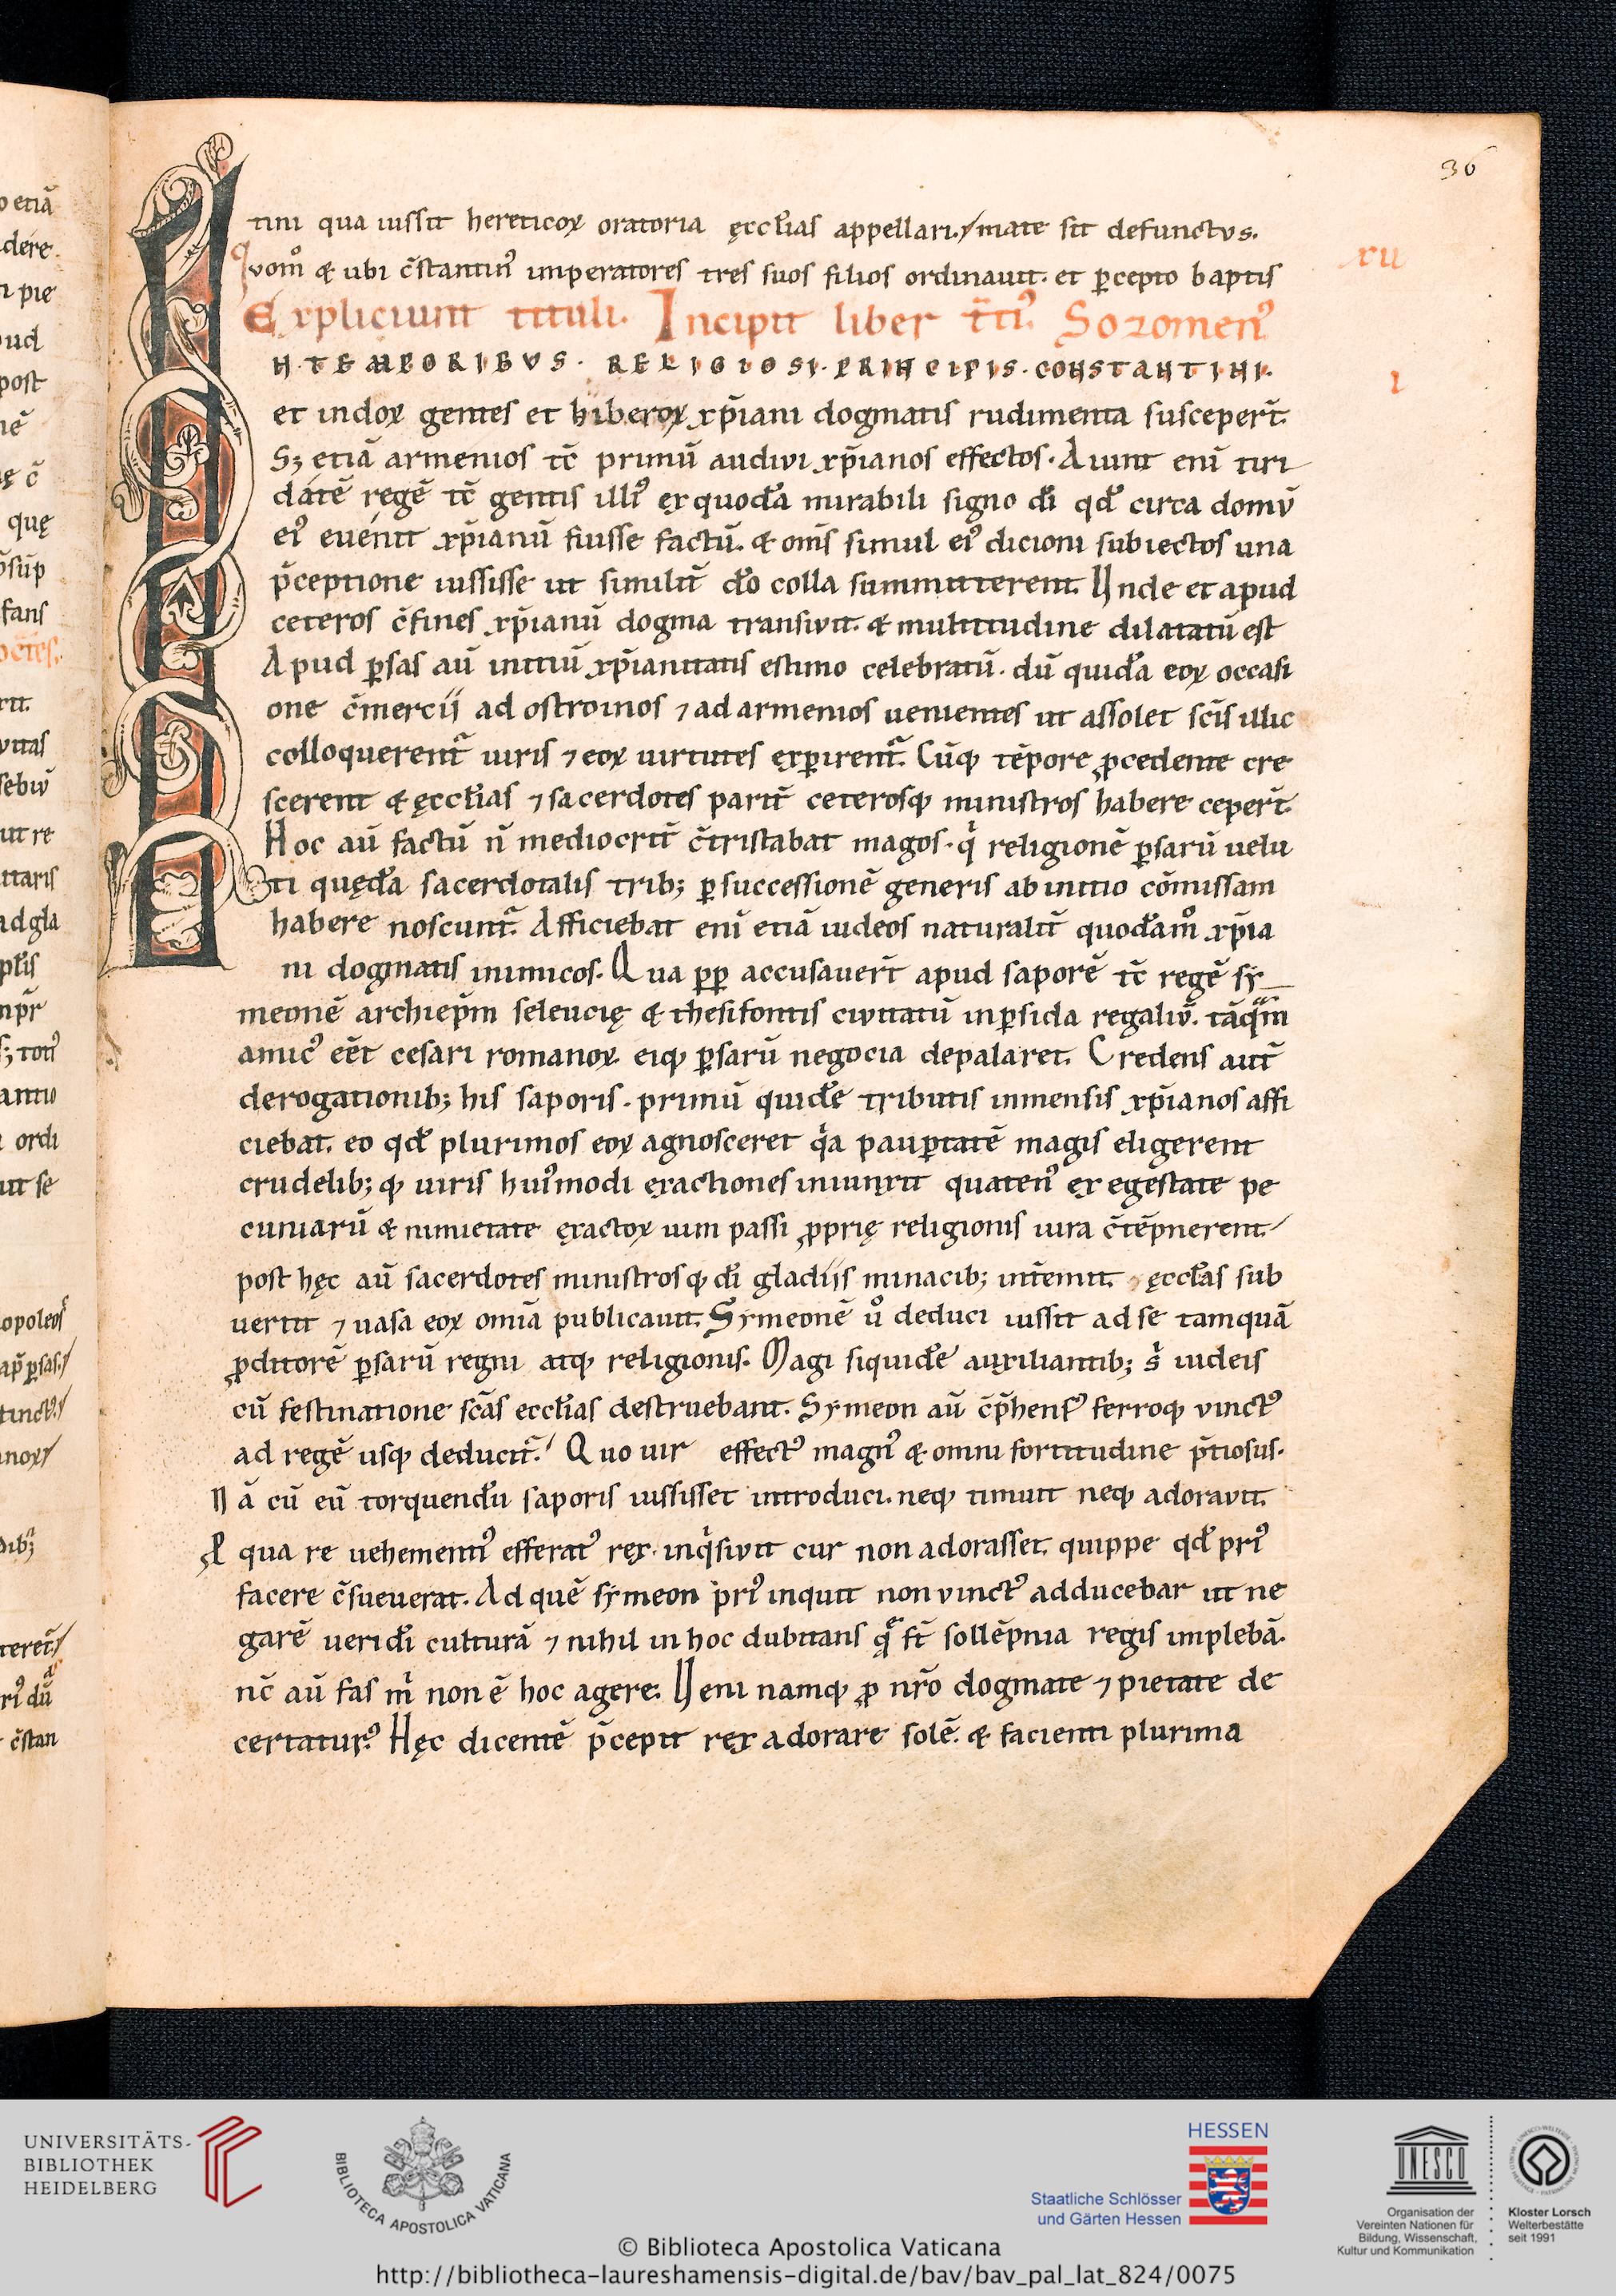 36
tini qua iussit hereticoꝝ oratoria ęccłias appellari./mate sit defunctus.
xii
Quom̊ & ubi c̄stantin᾽ imperatores tres suos filios ordinauit. et p̄cepto baptis
Expliciunt tituli. Incipit liber t̄ci᾽ Sozomen᾽
IN TEMPORIBVS. RELIGIOSI. PRINCIPIS. CONSTANTINI.
i
et indoꝝ gentes et hiberoꝝ xp̄iani dogmatis rudimenta susceper̄t.
S; etiā armenios tc̄ primū audivi xp̄ianos effectos. Aiunt eni̅ tiri
datē regē tc̄ gentis illi᾽ ex quodā mirabili signo di̅ qd̅ circa domū
ei᾽ euenit xp̄ianū fuisse factū. & omi̅s simul ei᾽ dicioni subiectos una
p̄ceptione iussisse ut simulit̄ do̅ colla summitterent. Unde et apud
ceteros c̄fines xp̄ianū dogma transivit. & multitudine dilatatū est
Apud ꝑsas aū initiū xp̄ianitatis estimo celebratū. dū quidā eoꝝ occasi
one c̄mercii ad ostroinos ⁊ ad armenios uenientes ut assolet sc̄is illic
colloquerent᷑ uiris ⁊ eoꝝ uirtutes exꝑirent᷑. Cūqꝫ tēpore ꝓcedente cre
scerent & ęccłias ⁊ sacerdotes parit̄ ceterosqꝫ ministros habere ceper̄t.
Hoc aū factū n̄ mediocrit̄ c̄tristabat magos. qͥ religionē ꝑsarū uelu
ti quędā sacerdotalis trib; ꝑ successionē generis ab initio cōmissam
habere noscunt᷑. Afficiebat eni̅ etiā iudeos naturalit̄ quodam̊ xp̄ia
ni dogmatis inimicos. Qua ꝓꝑ accusauer̄t apud saporē tc̄ regē sẏ
meonē archiep̄m seleucię & thesifontis civitatū in ꝑsida regaliū. tāqᵃ̄m
amic᾽ eēt cesari romanoꝝ. eiqꝫ ꝑsarū negocia depalaret. Credens aut̄
derogationib; his saporis. primū quidē tributis inmensis xp̄ianos affi
ciebat. eo qd̅ plurimos eoꝝ agnosceret qͥa pauꝑtatē magis eligerent
crudelib; qꝫ uiris hui᾽modi exactiones iniunxit quaten᾽ ex egestate pe
cuniarū & nimietate exactoꝝ uim passi ꝓprię religionis iura c̄tēpnerent/
post hęc aū sacerdotes ministrosqꝫ di̅ gladiis minacib; int̄emit. ęccłas sub
uertit ⁊ uasa eoꝝ omiā publicauit. Symeonē ů deduci iussit ad se tamquā
ꝓditorē ꝑsarū regni atqꝫ religionis. Magi siquidē auxiliantib; s͛ iudeis
cū festinatione sc̄as eccłias destruebant. Symeon aū c̄p̄hens᾽ ferroqꝫ vinct᾽
ad regē usqꝫ deducit᷑. Quo uir effect᾽ magn᾽ & omni fortitudine p̄tiosus.
Nā cū eū torquendū saporis iussisset introduci. neqꝫ timuit neqꝫ adoravit.
P qua re uehementi᾽ efferat᾽ rex. inqͥsivit cur non adorasset. quippe qd̅ pri᾽
facere c̄sueuerat. Ad quē sẏmeon pri᾽ inquit non vinct᾽ adducebar ut ne
garē ueri di̅ culturā ⁊ nihil in hoc dubitans q̨ͣ ft̄ sollēpnia regis implebā.
nc̄ aū fas m̊ non ē hoc agere. Ueni namqꝫ ꝓ nr̄o dogmate ⁊ pietate de
certatur᾽. Hęc dicentē p̄cepit rex adorare solē. & facienti plurima
UNIVERSITÄTS-
BIBLIOTHEK
HEIDELBERG
BIBLIOTECA APOSTOLICA VATICANA
HESSEN
Staatliche Schlösser
und Gärten Hessen
UNESCO
Organisation der
Vereinten Nationen für
Bildung, Wissenschaft,
Kultur und Kommunikation
Kloster Lorsch
Welterbestätte
seit 1991
© Biblioteca Apostolica Vaticana
http://bibliotheca-laureshamensis-digital.de/bav/bav_pal_lat_824/0075